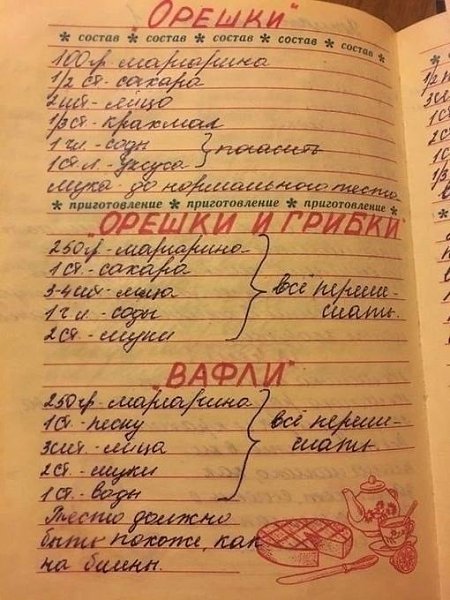 "ОРЕШКИ"
* состав * состав * состав * состав * состав *
100гр. маргарина
1/2 ст. сахара
2 шт. яйцо
1/3 ст. крахмал
1 ч.л. соды } погасить
1 ст.л. уксуса
мука до нормального теста
* приготовление * приготовление * приготовление *
"ОРЕШКИ И ГРИБКИ"
250гр. маргарина
1 ст. сахара
3-4 шт. яйца } всё переме-
1 ч.л. соды шать.
2 ст. муки
"ВАФЛИ"
250гр. маргарина
1 ст. песку } всё переме-
3 шт. яйца шать.
2 ст. муки
1 ст. воды
Тесто должно
быть похоже, как
на блины.